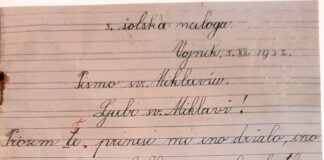 5. šolska naloga.
Vojnik, 5. XII. 1932.
Pismo sv. Miklavžu.
Ljubi sv. Miklavž!
Prosem te, prinesi mi eno držalo, eno